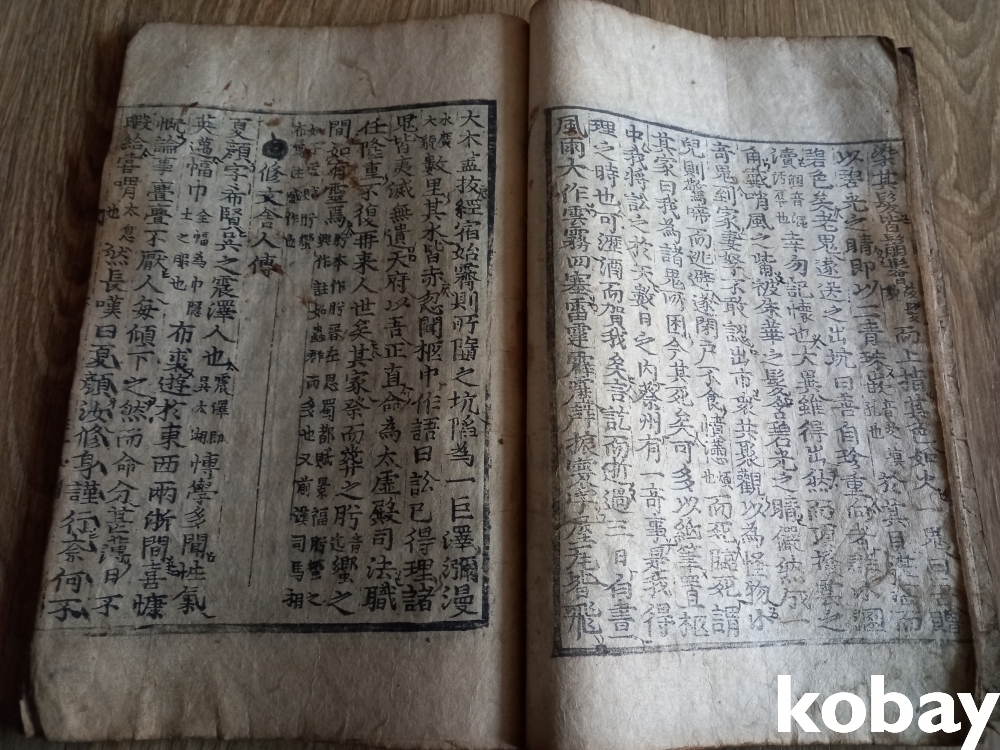 染其髮皆 而上指其色如火一鬼曰
以碧光之睛即以二青珠嵌 於其目
碧色矣老鬼遂送之出坑曰善自珍重向者群小溷
瀆 幸勿記懷也大異雖得出然而頂撥雲之
角戴哨風之觜被朱華之髮含碧光之睛儼然成一
奇鬼到家妻孥不敢認出市衆共聚觀以為怪物小
兒則驚啼而逃避遂閉戶不食憤懣而死臨死謂
其家曰我為諸鬼所困今其死矣可多以紙筆置柩
中我將訟之於天數日之內蔡州有一奇事是我得
理之時也可瀝酒而賀我矣言訖而逝過三日白晝
風雨大作雲霧四塞雷霆霹靂聲振寰宇屋瓦皆飛
大木盡拔經宿始霽則所墮之坑陷為一巨澤瀰漫
水廣大貌數里其水皆赤忽聞柩中作語曰訟已得理諸
鬼皆夷滅無遺天府以吾正直命為太虛殿司法職
任隆重不復再來人世矣其家祭而葬之肸蠁之
間如有靈焉
修文舍人傳
夏顏字希賢吳之震澤人也震澤即吳太湖博學多聞性氣
英邁幅巾金幅為巾隱士之服也布裘遊於東西兩浙間喜慷
慨論事亹亹不厭人每傾下之然而命分甚薄日不
暇給嘗喟太息也然長嘆曰夏顏汝修身謹行奈何不
kobay